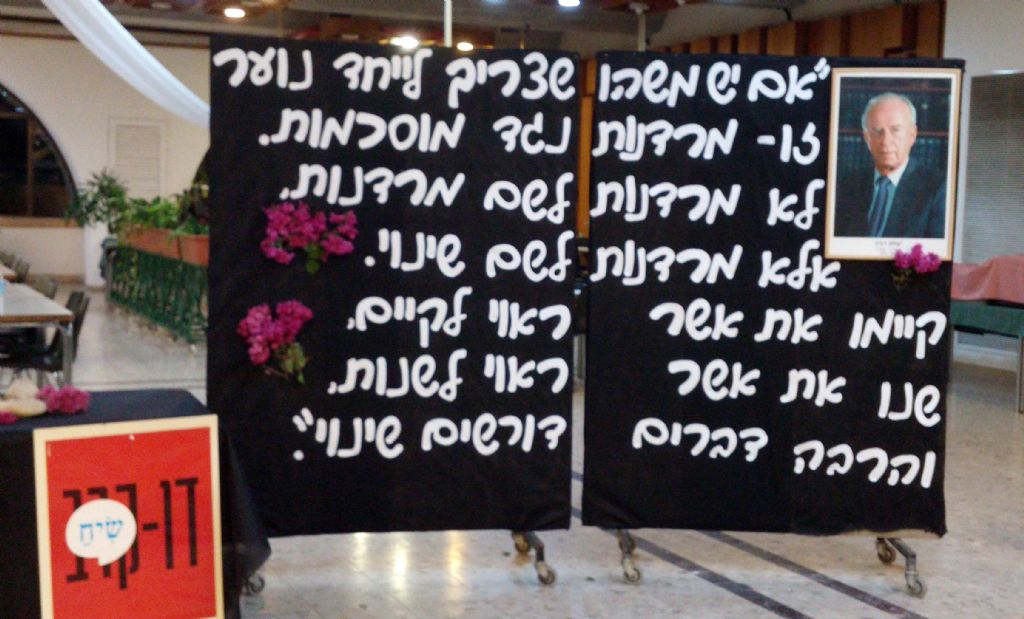 "אם יש משהו שצריך לייחד נוער
זו- מרדנות נגד מוסכמות.
לא מרדנות לשם מרדנות,
אלא מרדנות לשם שינוי.
קיימו את אשר ראוי לקיים,
שנו את אשר ראוי לשנות,
והרבה דברים דורשים שינוי".
דו-קרב
שִׂיחַ